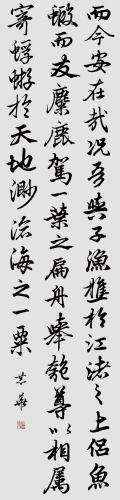 而今安在哉況吾與子漁樵於江渚之上侶魚
蝦而友麋鹿駕一葉之扁舟舉匏尊以相属
寄蜉蝣於天地渺滄海之一粟